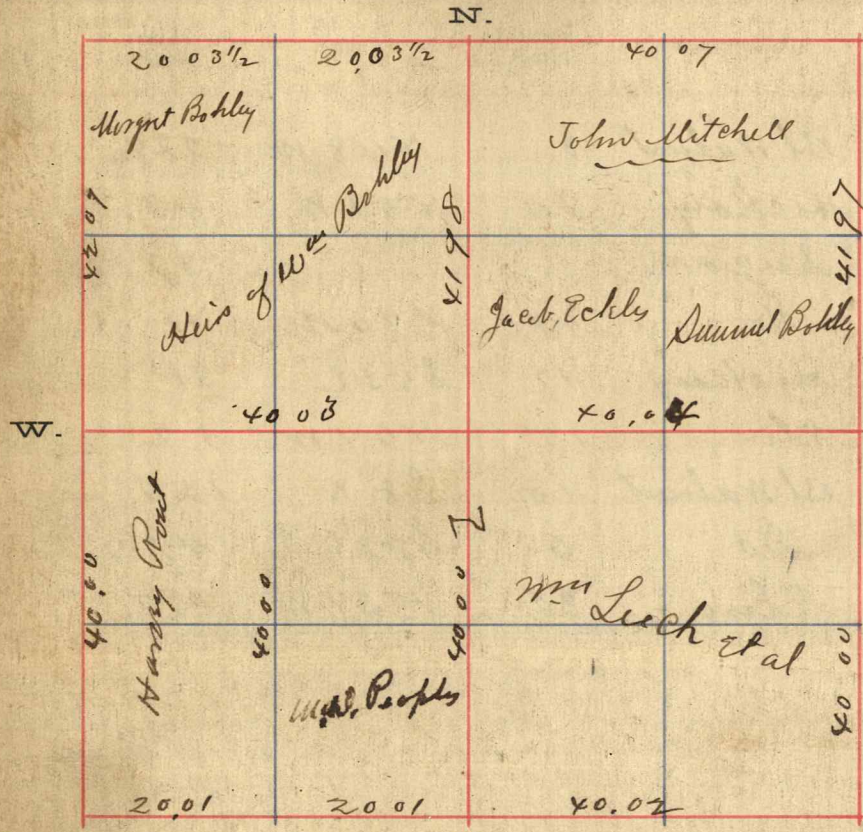 N.
20 03 1/2
20,03 1/2
40 07
Margret Bohley
John Mitchell
Heirs of Wm Bohley
4198
4197
Jacob, Eckles
Samuel Bohley
40 03
40,04
W.
Harvy
40.00
4000
4000
Wm Leech Et al
4000
Peoples
20,01
20 01
40.02